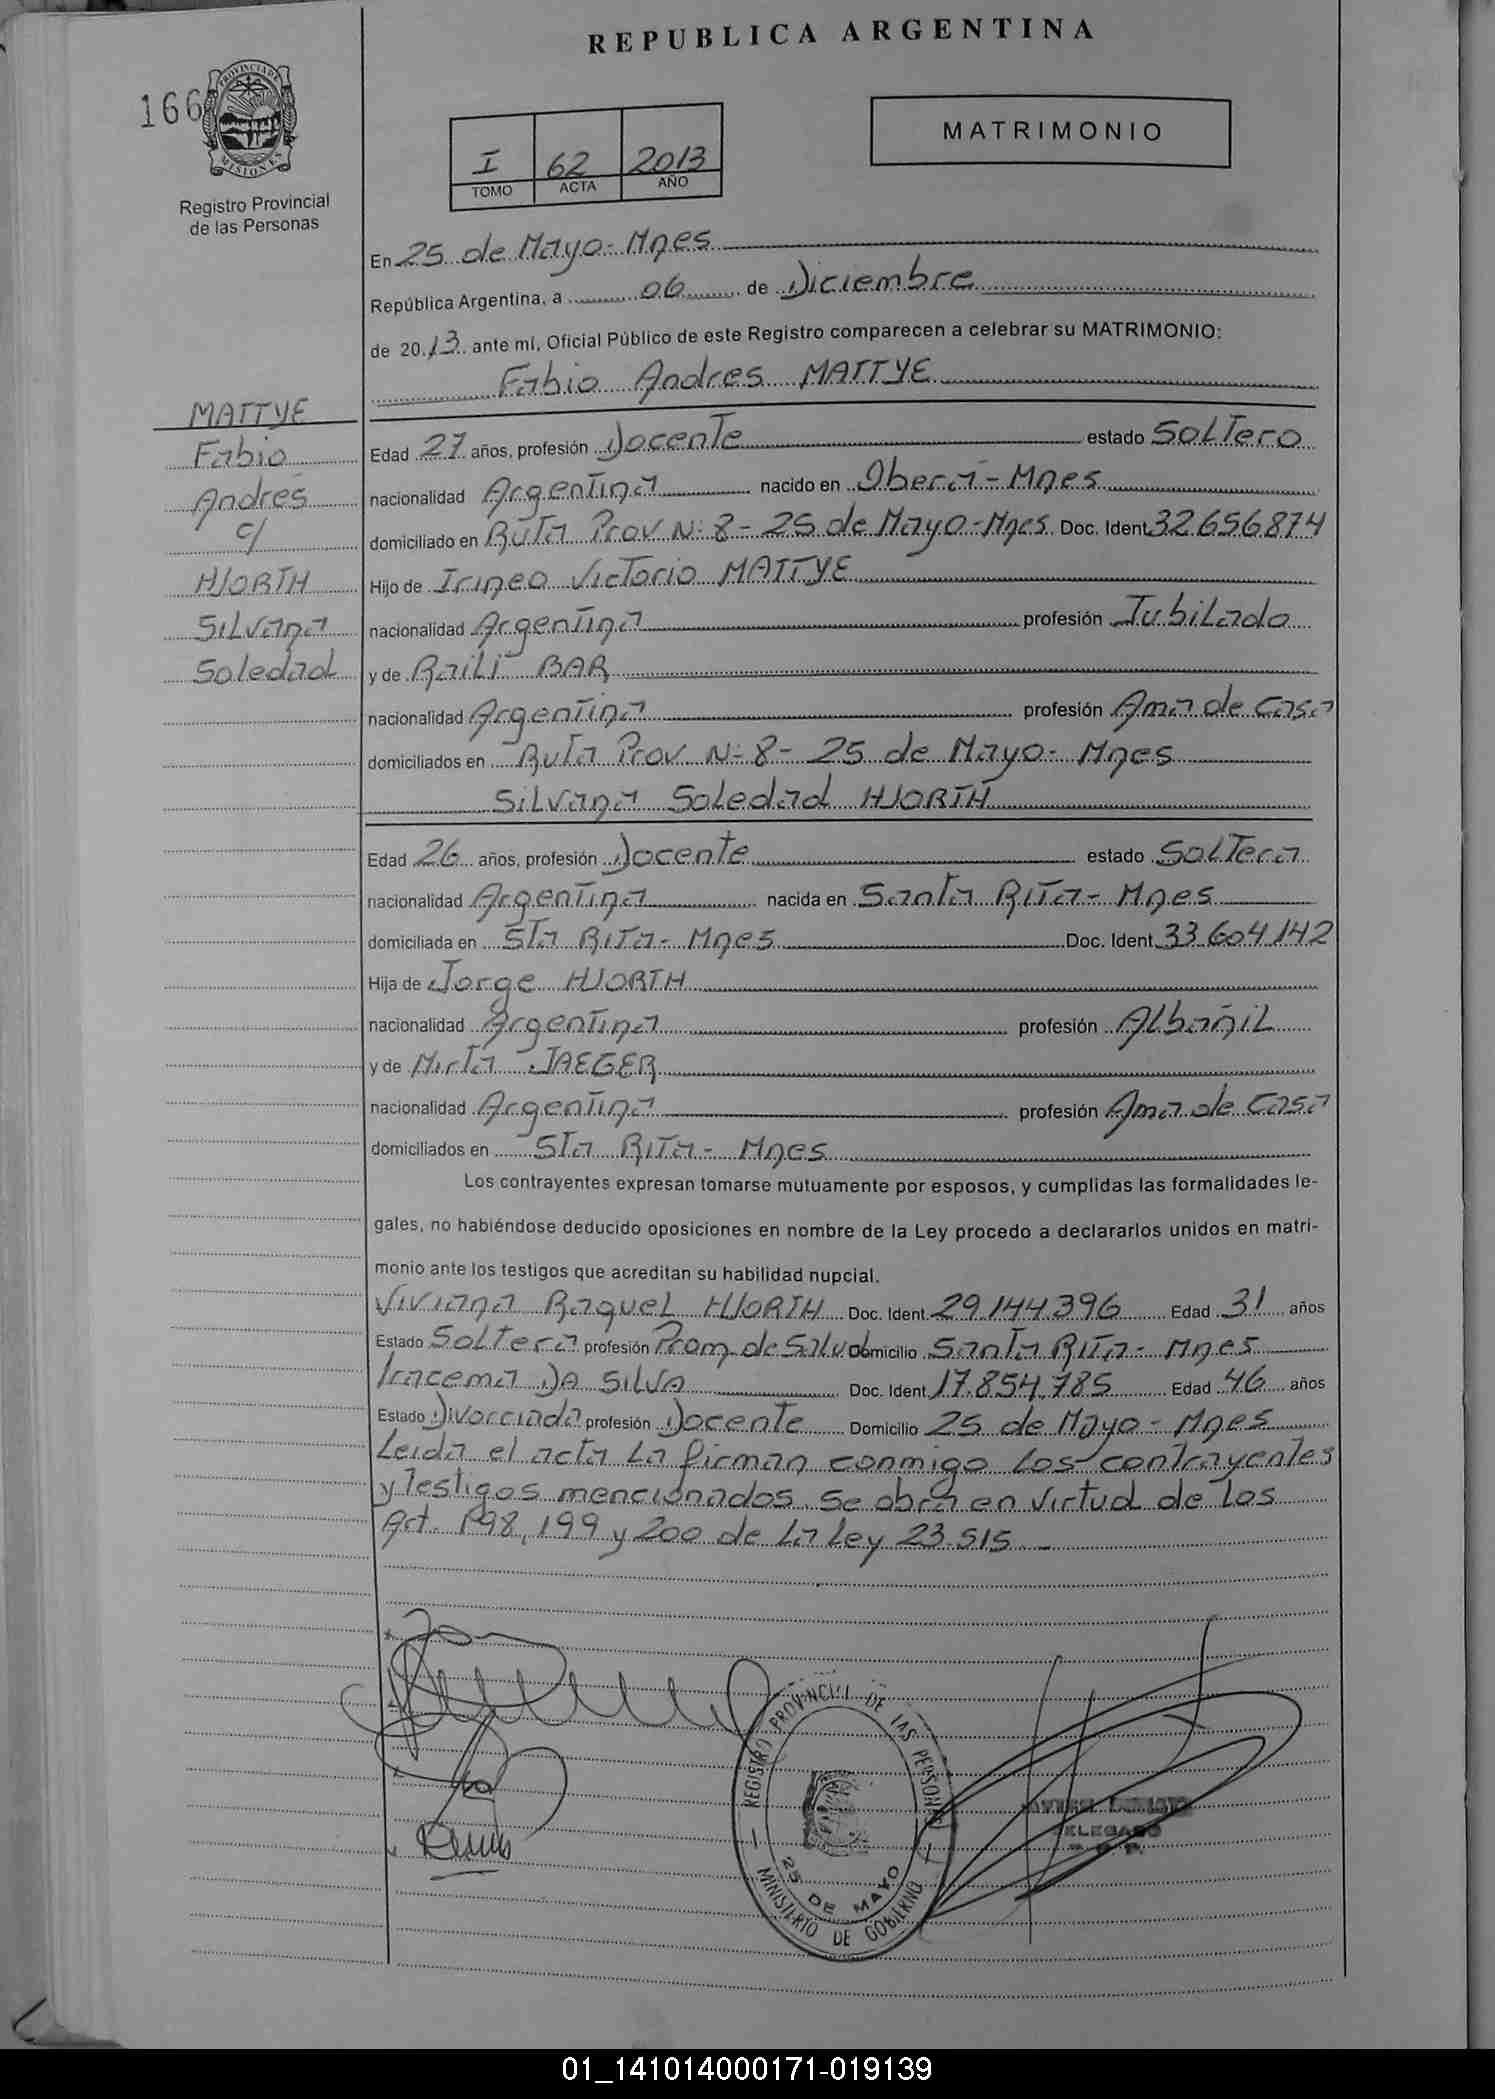 REPUBLICA ARGENTINA
166
PROVINCIA DE
MISIONES
Registro Provincial
de las Personas
I 62 2013
TOMO ACTA AÑO
MATRIMONIO
En 25 de Mayo - Mnes
República Argentina, a 06 de Diciembre
de 2013 ante mí, Oficial Público de este Registro comparecen a celebrar su MATRIMONIO:
Fabio Andres MATTYE
MATTYE
Fabio
Andrés
c/
HJORTH
Silvana
Soledad
Edad 27 años, profesión Docente estado Soltero
nacionalidad Argentina nacido en Oberá - Mnes
domiciliado en Ruta Prov Nº 8 - 25 de Mayo - Mnes. Doc. Ident 32.656.874
Hijo de Irineo Victorio MATTYE
nacionalidad Argentina profesión Jubilado
y de Raili BAR
nacionalidad Argentina profesión Ama de Casa
domiciliados en Ruta Prov Nº 8 - 25 de Mayo - Mnes
Silvana Soledad HJORTH
Edad 26 años, profesión Docente estado Soltera
nacionalidad Argentina nacida en Santa Rita - Mnes
domiciliada en Sta Rita - Mnes Doc. Ident 33.604.142
Hija de Jorge HJORTH
nacionalidad Argentina profesión Albañil
y de Mirta JAEGER
nacionalidad Argentina profesión Ama de Casa
domiciliados en Sta Rita - Mnes
Los contrayentes expresan tomarse mutuamente por esposos, y cumplidas las formalidades le-
gales, no habiéndose deducido oposiciones en nombre de la Ley procedo a declararlos unidos en matri-
monio ante los testigos que acreditan su habilidad nupcial.
Viviana Raquel HJORTH Doc. Ident 29.144.396 Edad 31 años
Estado Soltera profesión Prom. de Salud Domicilio Santa Rita - Mnes
Iracema DA SILVA Doc. Ident 17.854.785 Edad 46 años
Estado Divorciada profesión Docente Domicilio 25 de Mayo - Mnes
Leida el acta la firman conmigo los contrayentes
y testigos mencionados. Se obra en virtud de los
Art. 198, 199 y 200 de la Ley 23.515 -
REGISTRO PROVINCIAL DE LAS PERSONAS
25 DE MAYO
MINISTERIO DE GOBIERNO
DELEGADO
01_141014000171-019139